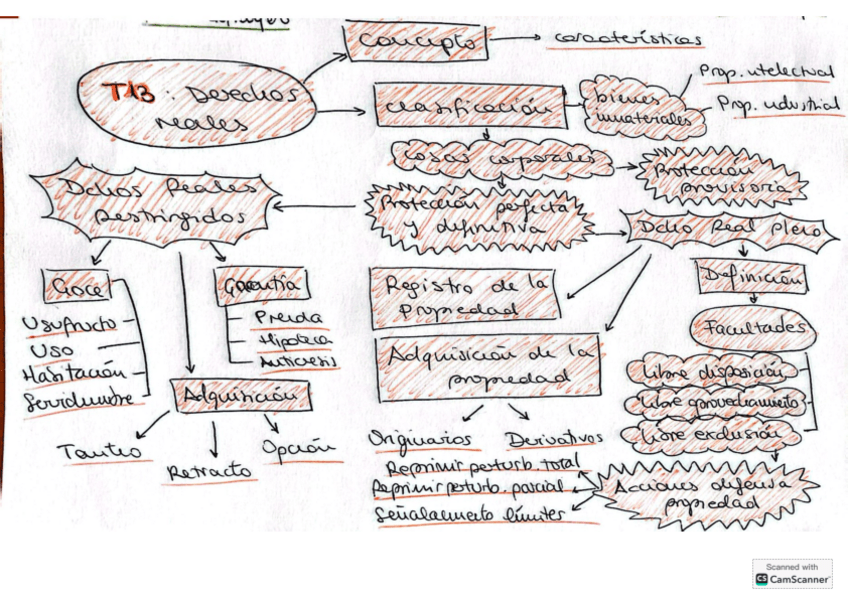 Concepto
características
T13: Derechos
reales
Clasificación
bienes
inmateriales
Prop. intelectual
Prop. industrial
Cosas corporales
Protección
provisoria
Dchos Reales
Restringidos
Protección perfecta
y definitiva
Dcho Real pleno
Goce
Usufructo
Uso
Habitación
Servidumbre
Garantía
Prenda
Hipoteca
Anticresis
Adquisición
Tanteo
Retracto
Opción
Registro de la
Propiedad
Adquisición de la
propiedad
Originarios
Derivativos
Definición
Facultades
Libre disposición
Libre aprovechamiento
Libre exclusión
Acciones defensa
propiedad
Reprimir perturb. total
Reprimir perturb. parcial
Señalamiento límites
Scanned with
CS CamScanner